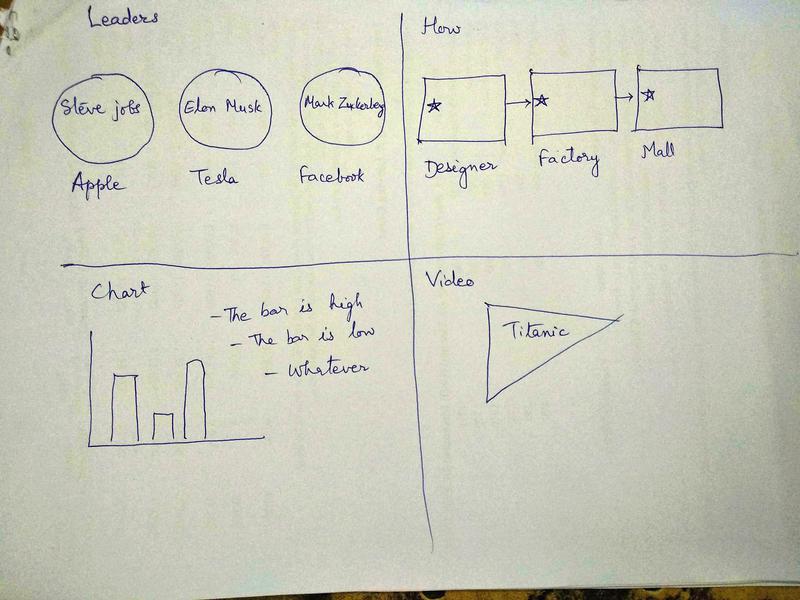 Leaders
Steve jobs
Elon Musk
Mark Zuckerberg
Apple
Tesla
Facebook
How
Designer
Factory
Mall
Chart
- The bar is high
- The bar is low
- Whatever
Video
Titanic